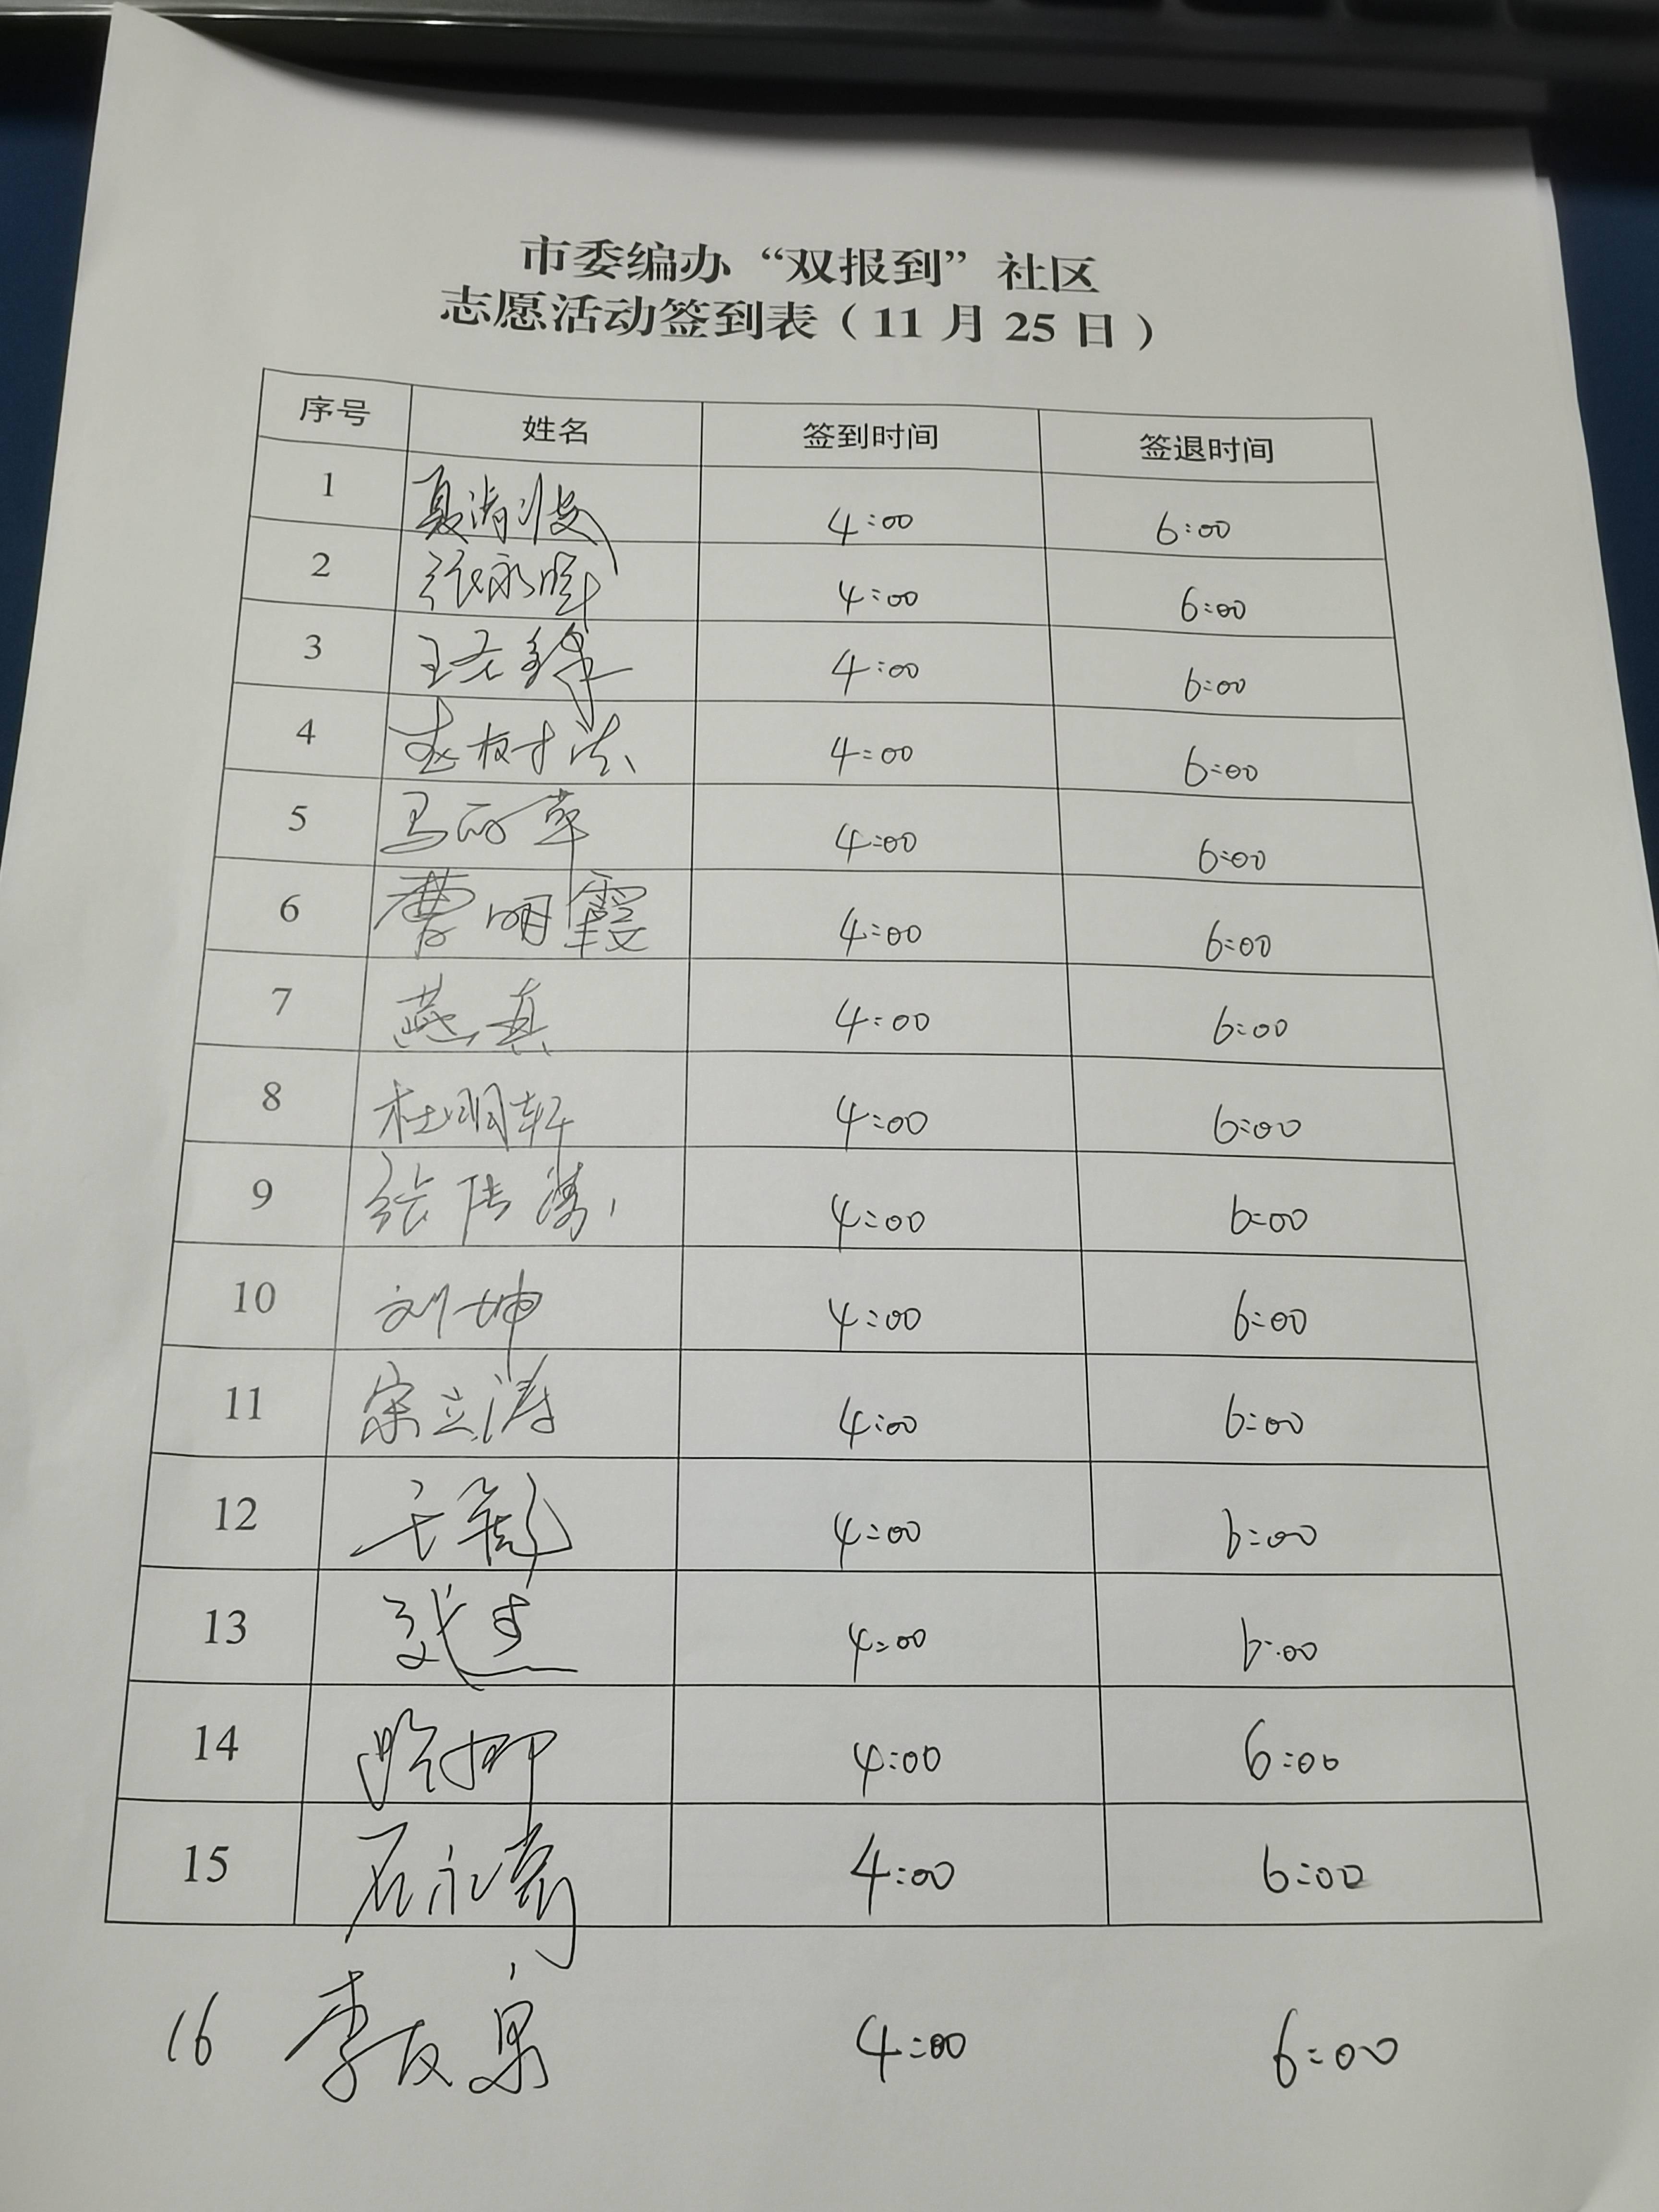 市委编办“双报到”社区
志愿活动签到表（11月25日）
序号 姓名 签到时间 签退时间
1 夏清波 4:00 6:00
2 张永晖 4:00 6:00
3 王 4:00 6:00
4 树 4:00 6:00
5 马丽苹 4:00 6:00
6 曹明霞 4:00 6:00
7 燕真 4:00 6:00
8 杜明轩 4:00 6:00
9 张传 4:00 6:00
10 刘坤 4:00 6:00
11 宋立涛 4:00 6:00
12 4:00 6:00
13 4:00 6:00
14 4:00 6:00
15 石永 4:00 6:00
16 李友泉 4:00 6:00